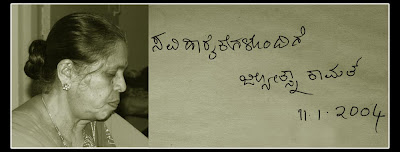 ಸವಿಹಾರೈಕೆಗಳೊಂದಿಗೆ
ಜ್ಯೋತ್ಸ್ನಾ ಕಾಮತ
11.1.2004